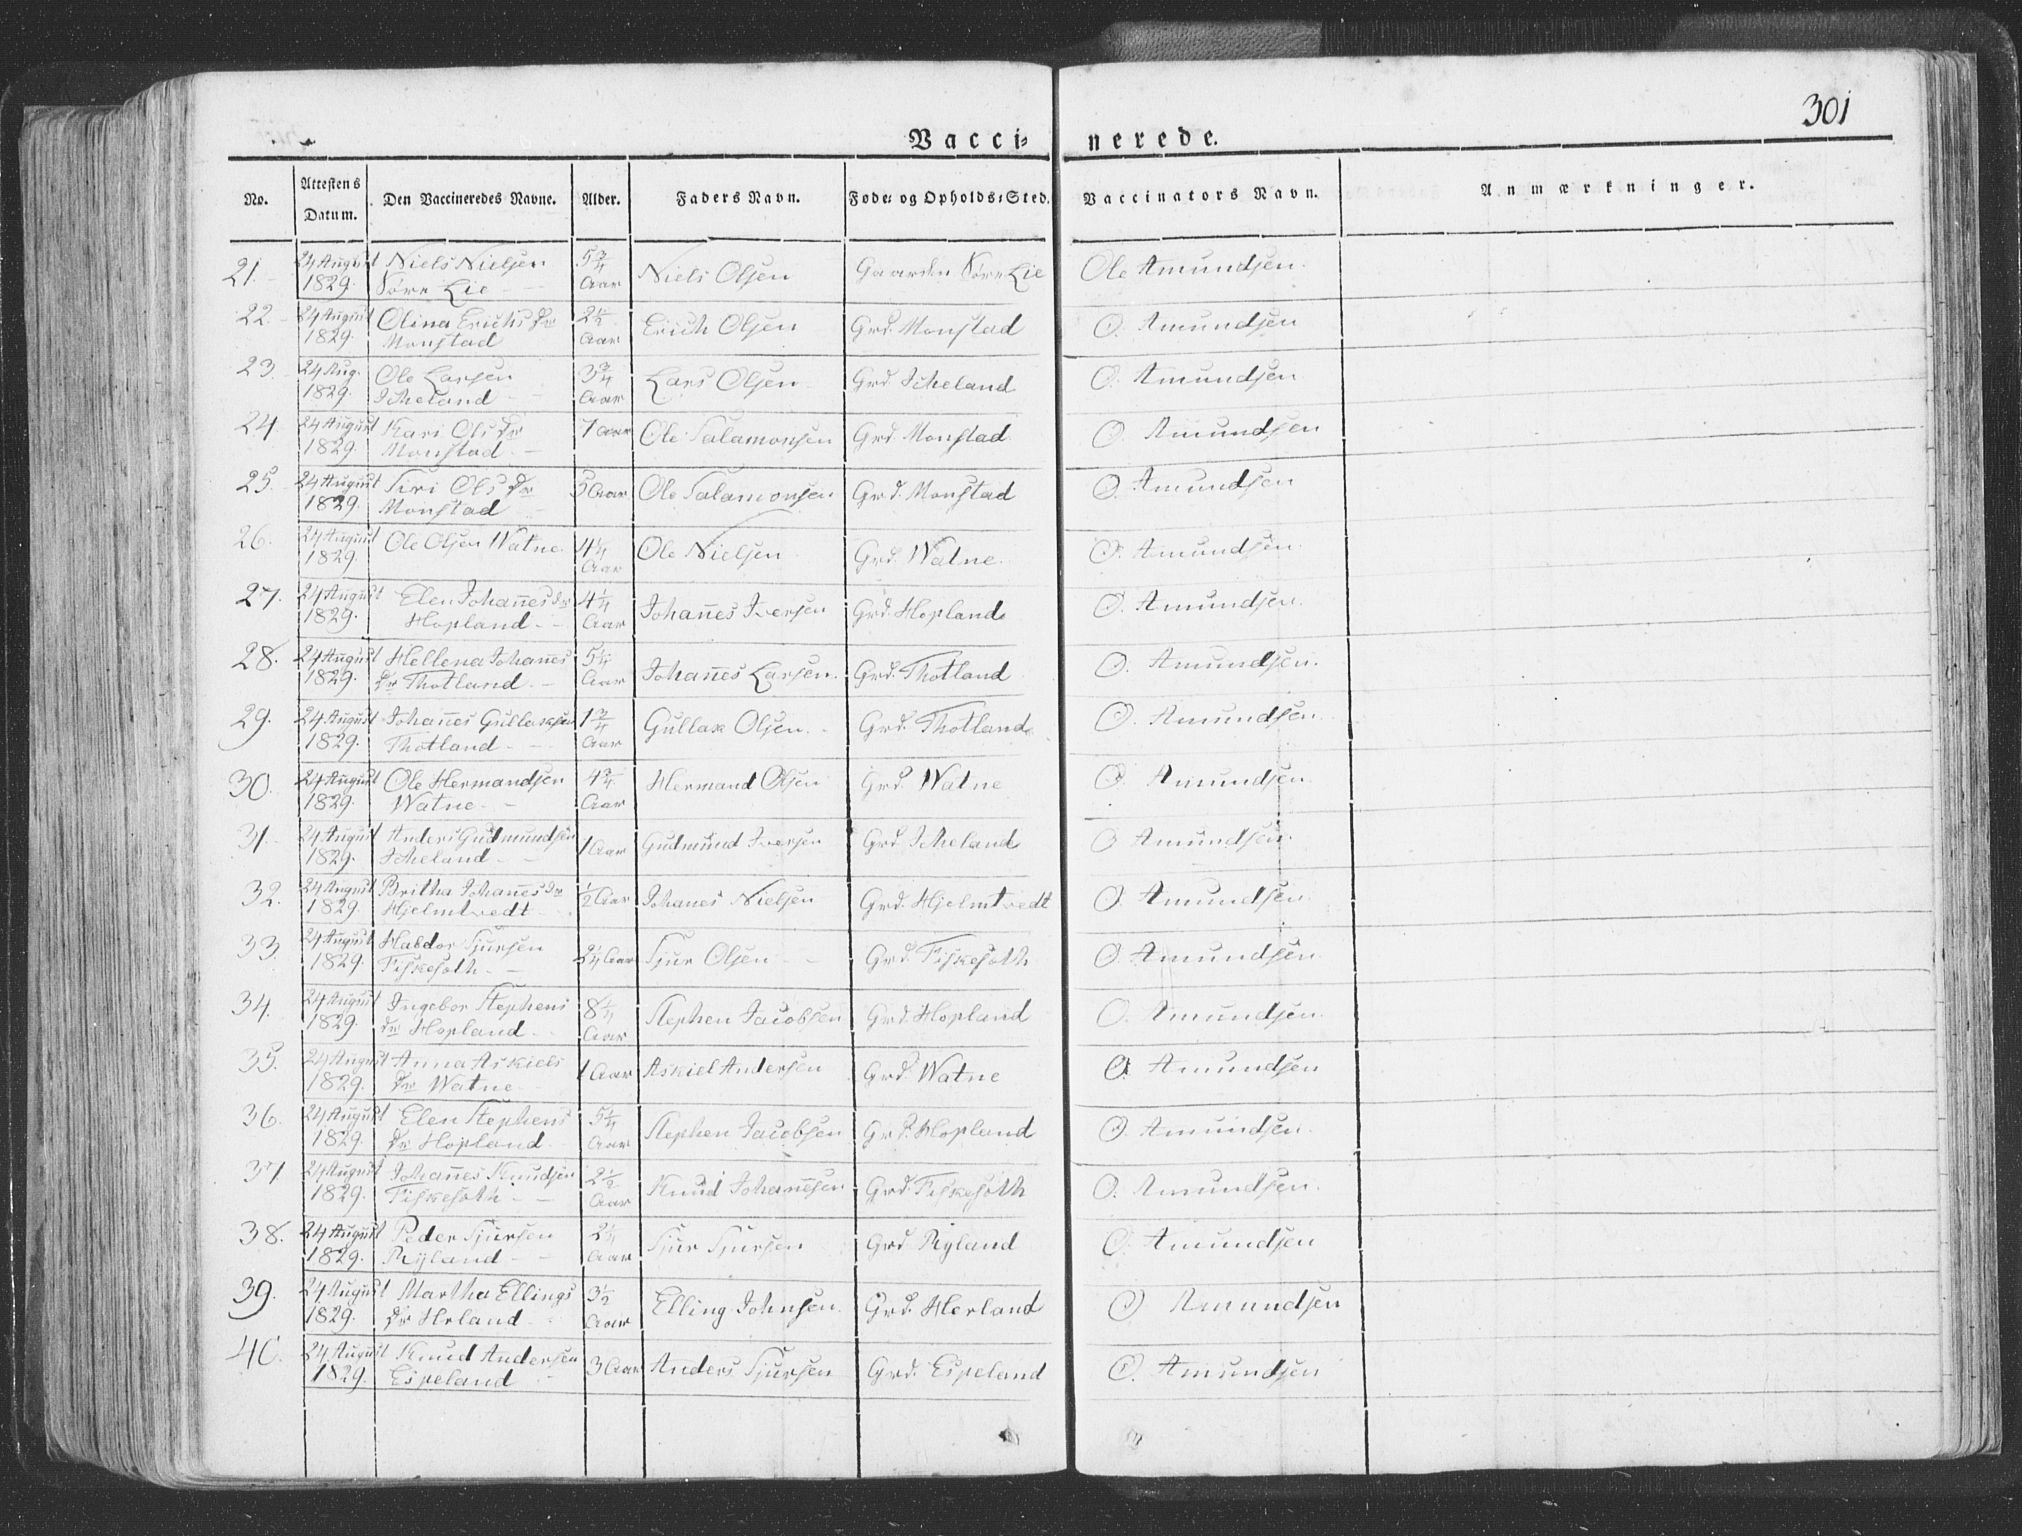 301
Vaccinerede.
No. Attestens Datum. Den Vaccineredes Navne. Alder. Faders Navn. Føde- og Opholds-Sted. Vaccinators Navn. Anmærkninger.
21. 24 August 1829. Niels Nielsen Søre Lie 5 3/4 Aar Niels Olsen Gaarden Søre Lie Ole Amundsen.
22. 24 August 1829. Olina Erichs Dr Monstad 2 1/2 Aar Erich Olsen Grd. Monstad O. Amundsen
23. 24 Aug. 1829. Ole Larsen Icheland 3 3/4 Aar Lars Olsen Grd. Icheland O. Amundsen
24. 24 August 1829. Kari Ols Dr Monstad 7 Aar Ole Salamonsen Grd Monstad O. Amundsen
25. 24 August 1829. Siri Ols Dr Monstad 5 Aar Ole Salamonsen Grd. Monstad O. Amundsen
26. 24 August 1829. Ole Olsen Watne. 4 1/4 Aar Ole Nielsen Grd. Watne. O. Amundsen.
27. 24 August 1829. Elen Johan̄es Dr Hopland 4 1/4 Aar Johan̄es Iversen Grd. Hopland O. Amundsen.
28. 24 August 1829. Hellena Johan̄es Dr Thotland 5 1/4 Aar Johan̄es Larsen. Grd. Thotland O. Amundsen.
29. 24 August 1829. Johan̄es Gullaksen Thotland 1 3/4 Aar Gullak Olsen. Grd. Thotland O. Amundsen.
30. 24 August 1829. Ole Hermandsen Watne 4 3/4 Aar Hermand Olsen Grd Watne O. Amundsen
31. 24 August 1829. Anders Gudmundsen Icheland 1 Aar Gudmund Iversen Grd. Icheland O Amundsen.
32. 24 August 1829. Britha Johan̄es Dr Hjelmtvedt 1/2 Aar Johanes Nielsen Grd. Hjelmtvedt O. Amundsen.
33. 24 August 1829. Haldor Sjursen Fiskesøth 2 1/4 Aar Sjur Olsen Grd. Fiskesøth O. Amundsen.
34. 24 August 1829. Ingebor Stephens Dr Hopland 8 1/4 Aar Stephen Jacobsen Grd. Hopland O. Amundsen.
35. 24 August 1829. Anna Askiels Dr Watne 1 Aar Askiel Andersen Grd. Watne O. Amundsen
36. 24 August 1829. Elen Stephens Dr Hopland 5 1/4 Aar Stephen Jacobsen Grd. Hopland O. Amundsen.
37 24 August 1829. Johan̄es Knudsen Fiskesøth 2 1/2 Aar Knud Johan̄esen Grd. Fiskesøth O. Amundsen.
38. 24 August 1829. Peder Sjursen Ryland 2 1/4 Aar Sjur Sjursen Grd Ryland O. Amundsen
39. 24 August 1829. Martha Ellings Dr Herland 3 1/2 Aar Elling Johnsen. Grd. Herland O Amundsen
40. 24 August 1829. Knud Andersen Espeland 3 Aar Anders Sjursen Grd. Espeland O. Amundsen